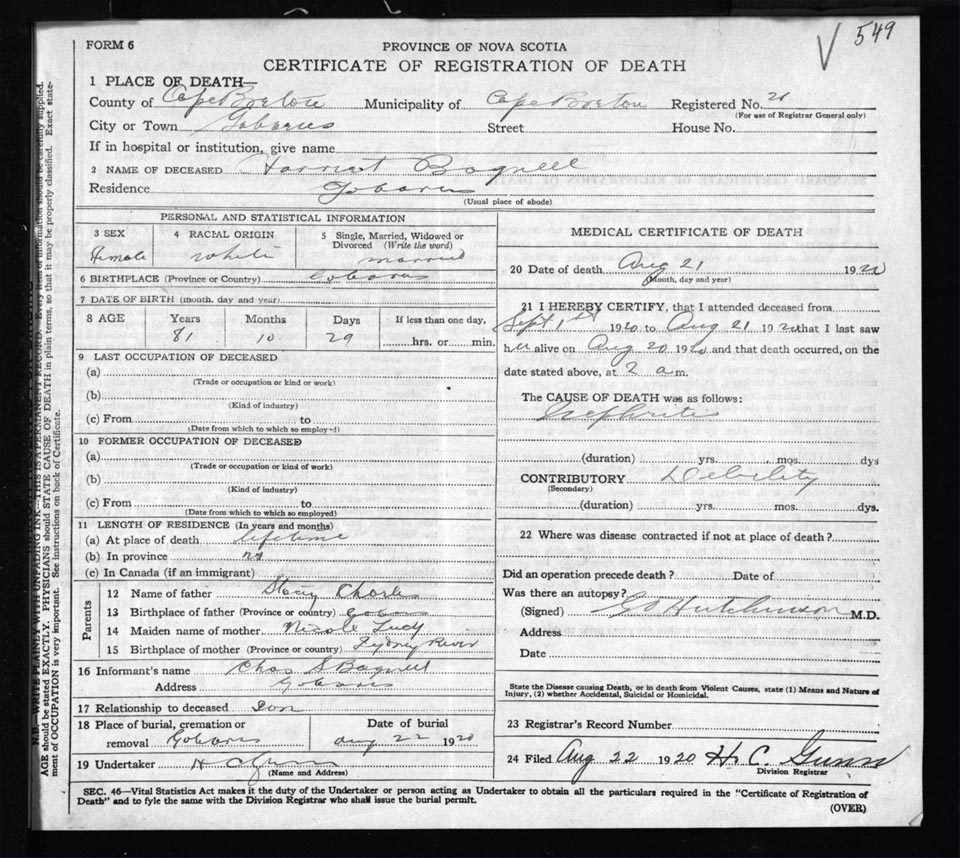 549
FORM 6
PROVINCE OF NOVA SCOTIA
CERTIFICATE OF REGISTRATION OF DEATH
1 PLACE OF DEATH—
County of Cape Breton Municipality of Cape Breton Registered No.
(For use of Registrar General only)
City or Town Gabarus Street House No.
If in hospital or institution, give name
2 NAME OF DECEASED Harriet Bagnell
Residence Gabarus
(Usual place of abode)
PERSONAL AND STATISTICAL INFORMATION
3 SEX 4 RACIAL ORIGIN 5 Single, Married, Widowed or Divorced (Write the word)
Female White married
6 BIRTHPLACE (Province or Country) Gabarus
7 DATE OF BIRTH (month, day and year)
8 AGE Years Months Days If less than one day,
81 10 29 hrs. or min.
9 LAST OCCUPATION OF DECEASED
(a)
(Trade or occupation or kind or work)
(b)
(Kind of industry)
(c) From to
(Date from which to which so employed)
10 FORMER OCCUPATION OF DECEASED
(a)
(Trade or occupation or kind of work)
(b)
(Kind of industry)
(c) From to
(Date from which to which so employed)
11 LENGTH OF RESIDENCE (In years and months)
(a) At place of death lifetime
(b) In province
(c) In Canada (if an immigrant)
Parents
12 Name of father Stacey Charles
13 Birthplace of father (Province or country)
14 Maiden name of mother Lucy
15 Birthplace of mother (Province or country) Sydney River
16 Informant's name Chas S Bagnell
Address Gabarus
17 Relationship to deceased Son
18 Place of burial, cremation or Date of burial
removal Gabarus Aug 22 1920
19 Undertaker H C Gunn
(Name and Address)
MEDICAL CERTIFICATE OF DEATH
20 Date of death Aug 21 1920
(Month, day and year)
21 I HEREBY CERTIFY, that I attended deceased from
Sept 1st 1920 to Aug 21 1920 that I last saw
her alive on Aug 20 1920 and that death occurred, on the
date stated above, at 2 a m.
The CAUSE OF DEATH was as follows:
Nephritis
(duration) yrs. mos. dys
CONTRIBUTORY Debility
(Secondary)
(duration) yrs. mos. dys.
22 Where was disease contracted if not at place of death?
Did an operation precede death? Date of
Was there an autopsy?
(Signed) Hutchinson M.D.
Address
Date
State the Disease causing Death, or in death from Violent Causes, state (1) Means and Nature of
Injury, (2) whether Accidental, Suicidal or Homicidal.
23 Registrar's Record Number
24 Filed Aug 22 1920 H. C. Gunn
Division Registrar
SEC. 46—Vital Statistics Act makes it the duty of the Undertaker or person acting as Undertaker to obtain all the particulars required in the "Certificate of Registration of
Death" and to fyle the same with the Division Registrar who shall issue the burial permit.
(OVER)
N.B.—WRITE PLAINLY WITH UNFADING INK—THIS IS A PERMANENT RECORD. Every item of information should be carefully supplied.
AGE should be stated EXACTLY. PHYSICIANS should STATE CAUSE OF DEATH in plain terms, so that it may be properly classified. Exact state-
ment of OCCUPATION is very important. See instructions on back of Certificate.